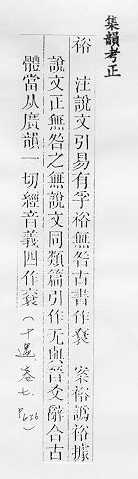 集韻考正
裕 注說文引易有孚裕無咎古書作 案裕訛裕據
說文正無咎之無說文同類篇引作无與晉爻辭合古
體當从廣韻一切經音義四作(卷七 P626)